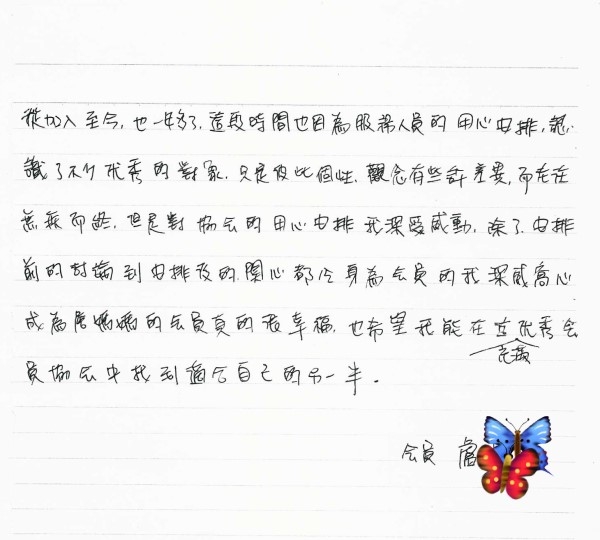 從加入至今,也一年多了,這段時間也因為服務人員的用心安排,認
識了不少优秀的對象,只是彼此個性、觀念有些許差異,而左左
無疾而終,但是對協会的用心安排我深受感動,除了安排
前的討論到安排後的関心都令身為会員的我深感窩心
成為唐媽媽的会員真的很幸福,也希望我能在這优秀会
充滿
員協会中找到適合自己的另一半.
会員 盧